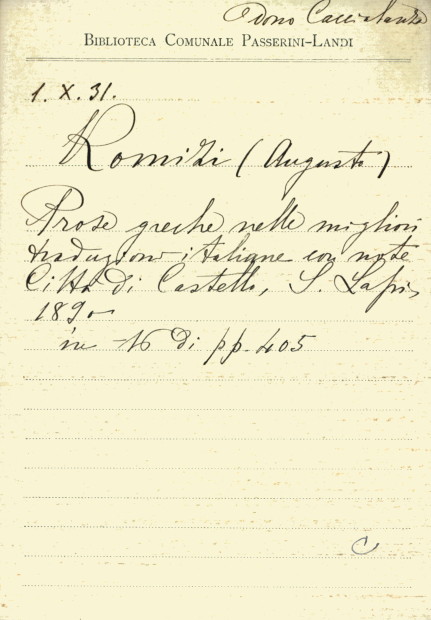 Dono Caccialanza
BIBLIOTECA COMUNALE PASSERINI-LANDI
1. X. 31.
Romizi (Augusto)
Prose greche nelle migliori
traduzioni italiane con note
Città di Castello, S. Lapi,
1890
in 16 di pp. 405
C